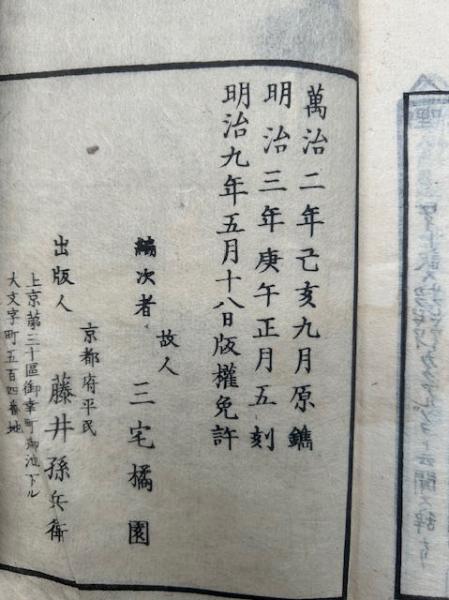 萬治二年己亥九月原鐫
明治三年庚午正月五刻
明治九年五月十八日版權免許
故人
編次者 三宅橘園
京都府平民
出版人 藤井孫兵衛
上京第三十區御幸町御池下ル
大文字町五百四番地